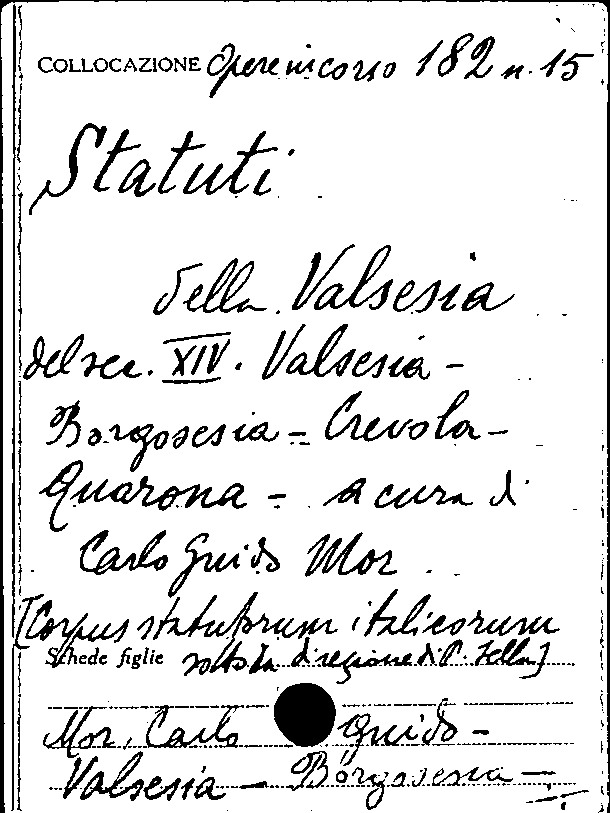 COLLOCAZIONE Opere in corso 182 n. 15
Statuti
della Valsesia
del sec. XIV. Valsesia -
Borgosesia - Crevola -
Quarona - a cura di
Carlo Guido Mor
[Corpus statutorum italicorum
Schede figlie sotto la direzione di P. Sella]
Mor, Carlo Guido -
Valsesia - Borgosesia -